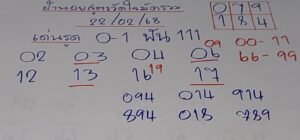 ย่านดยสูตรวัดใจมัดรวม
22/02/68
079
184
เด่นรูด 0-1 ฟัน 111
09 00-11
02 03 04 06 66-99
12 13 16 19 17
094 014 914
894 018 789